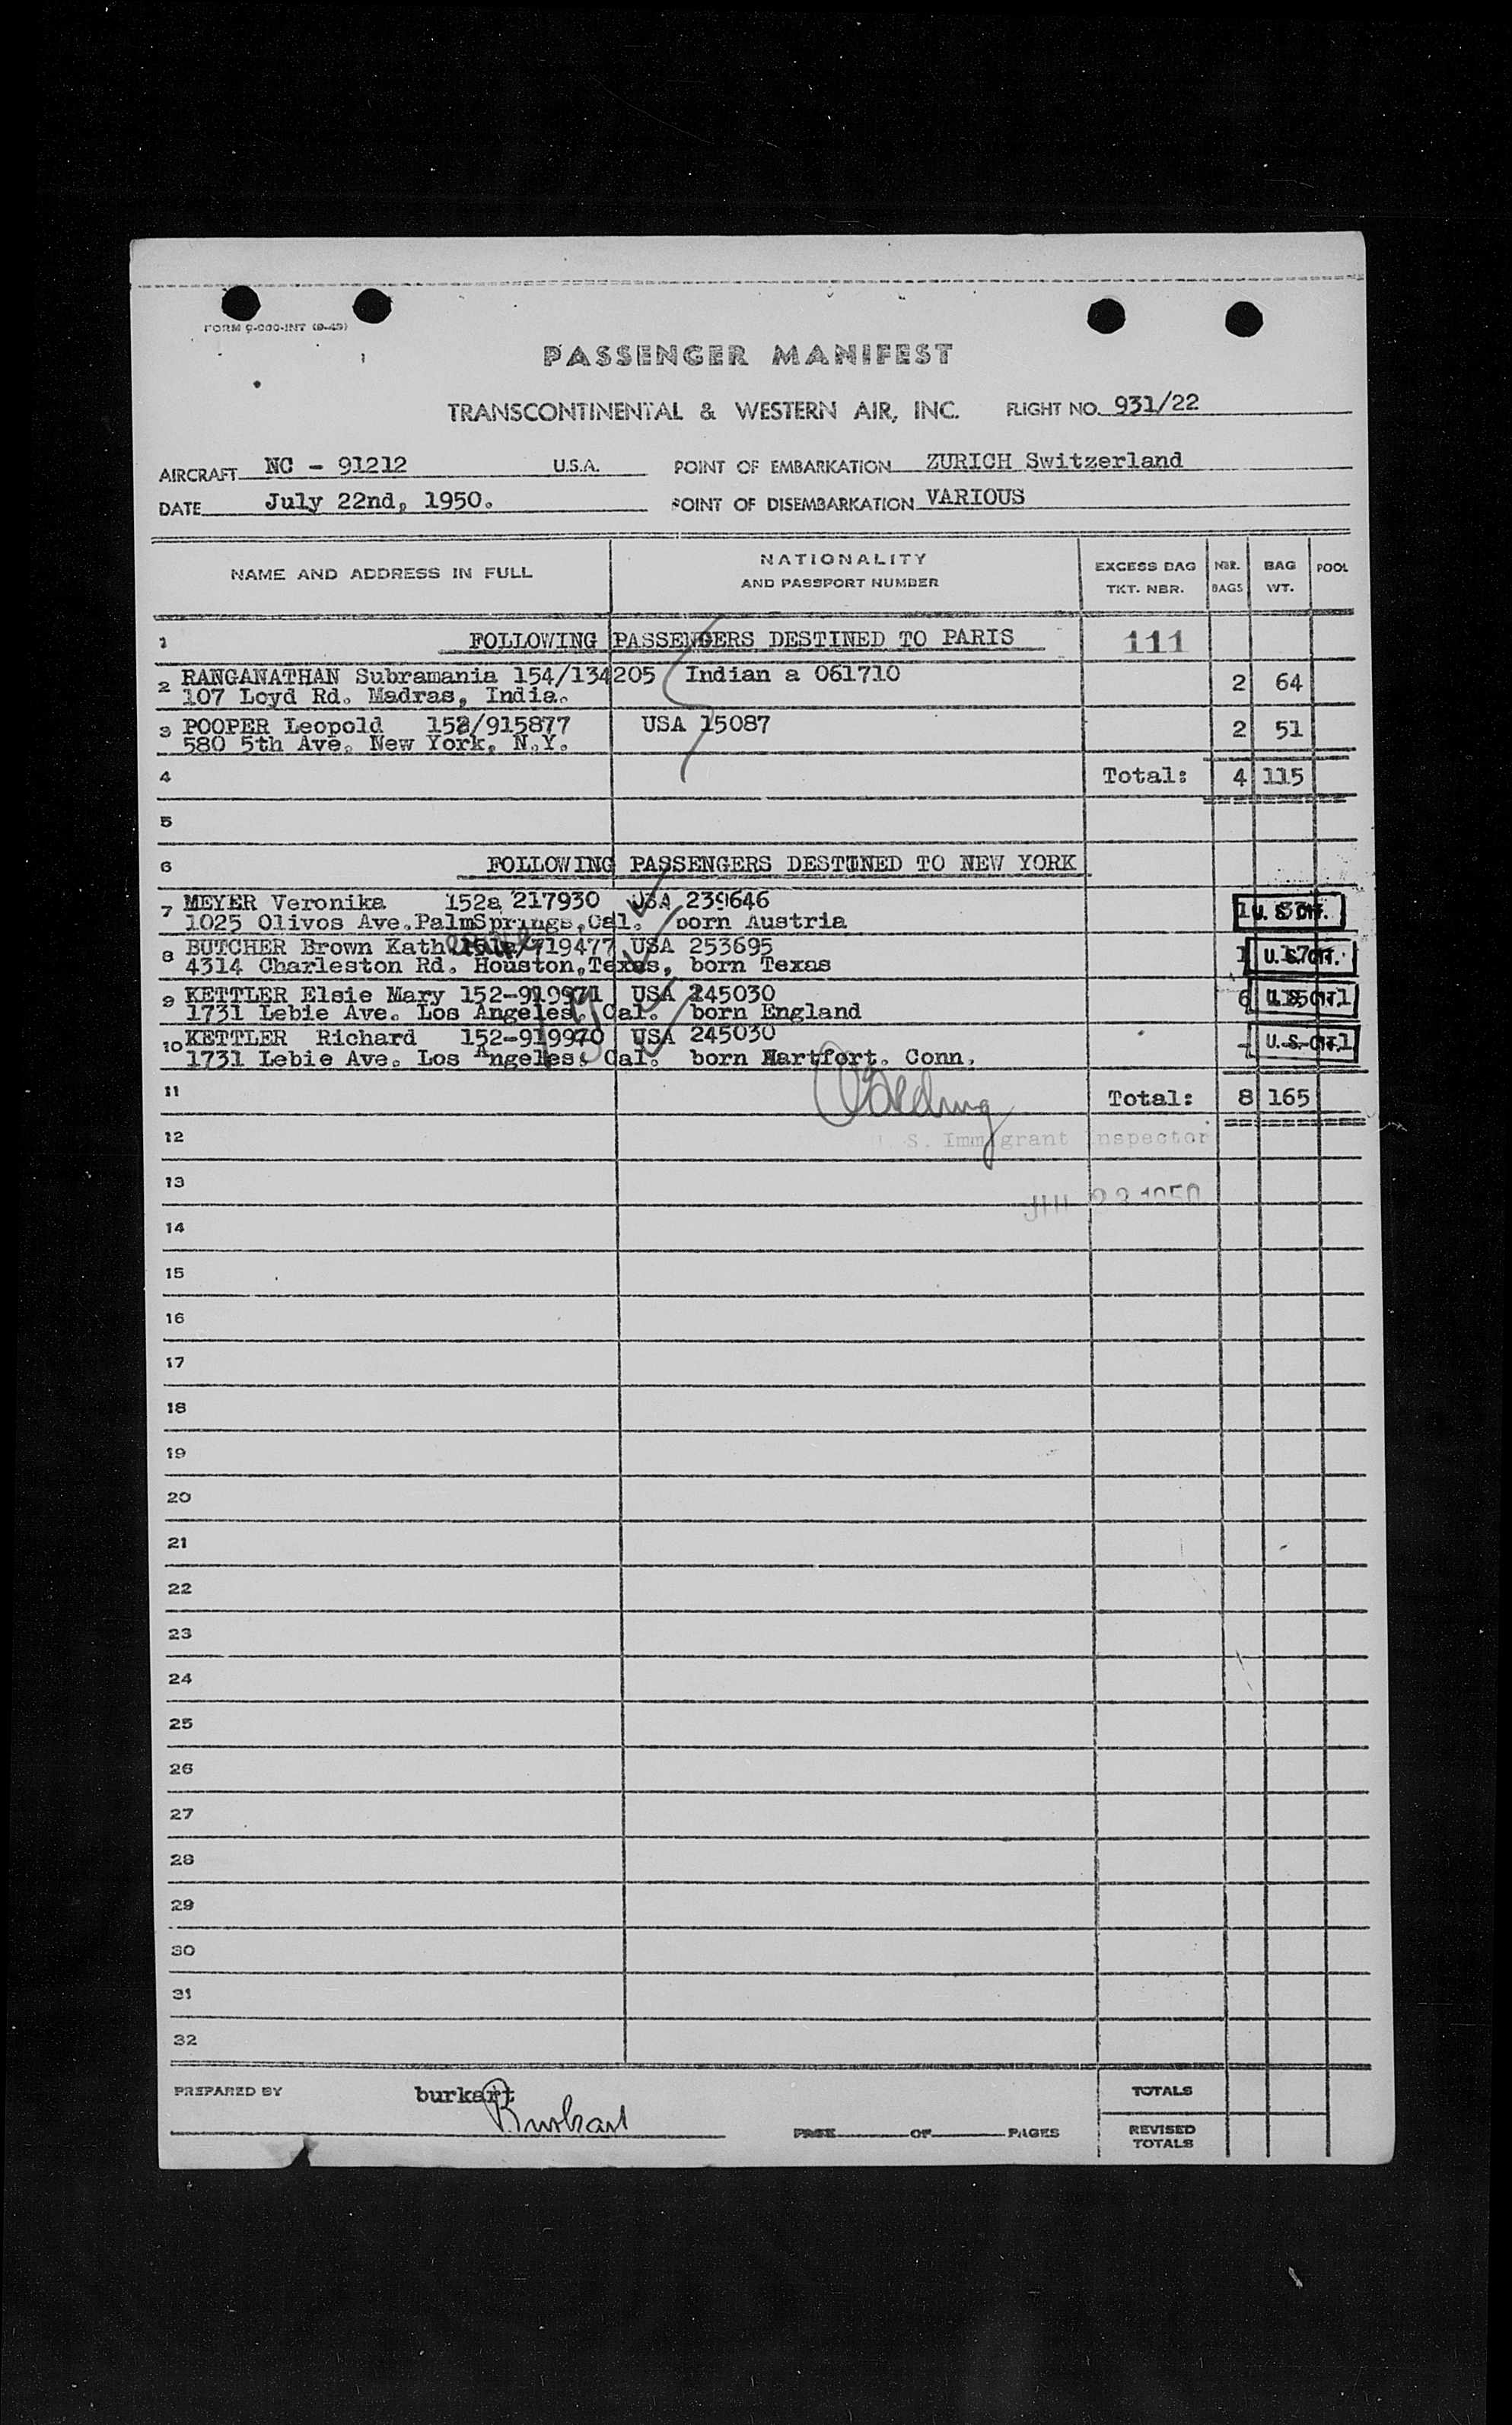 FORM 9-000-INT (9-49)
PASSENGER MANIFEST
TRANSCONTINENTAL & WESTERN AIR, INC. FLIGHT NO. 931/22
AIRCRAFT NC - 91212 U.S.A. POINT OF EMBARKATION ZURICH Switzerland
DATE July 22nd, 1950. POINT OF DISEMBARKATION VARIOUS
NAME AND ADDRESS IN FULL NATIONALITY AND PASSPORT NUMBER EXCESS BAG TKT. NBR. NBR. BAGS BAG WT. POOL
1 FOLLOWING PASSENGERS DESTINED TO PARIS 111
2 RANGANATHAN Subramania 154/134205 Indian a 061710
107 Loyd Rd. Madras, India. 2 64
3 POOPER Leopold 152/915877 USA 15087
580 5th Ave. New York, N.Y. 2 51
4 Total: 4 115
5
6 FOLLOWING PASSENGERS DESTINED TO NEW YORK
7 MEYER Veronika 152a 217930 USA 239646
1025 Olivos Ave.PalmSprings,Cal. born Austria 1 U. S. CIT.
8 BUTCHER Brown Kath 719477 USA 253695
4314 Charleston Rd. Houston,Texas, born Texas 1 U. S. CIT.
9 KETTLER Elsie Mary 152-919971 USA 245030
1731 Lebie Ave. Los Angeles. Cal. born England 6 U. S. CIT.
10 KETTLER Richard 152-919970 USA 245030
1731 Lebie Ave. Los Angeles. Cal. born Hartfort. Conn. - U. S. CIT.
11 Total: 8 165
12 U. S. Immigrant Inspector
13 JUL 23 1950
14
15
16
17
18
19
20
21
22
23
24
25
26
27
28
29
30
31
32
PREPARED BY burkart TOTALS
Burkart PAGE OF PAGES REVISED TOTALS